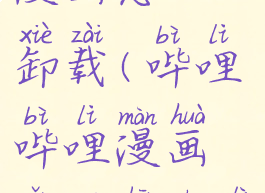 xiè zài bì lì
卸载(哔哩
bì lì màn huà
哔哩漫画